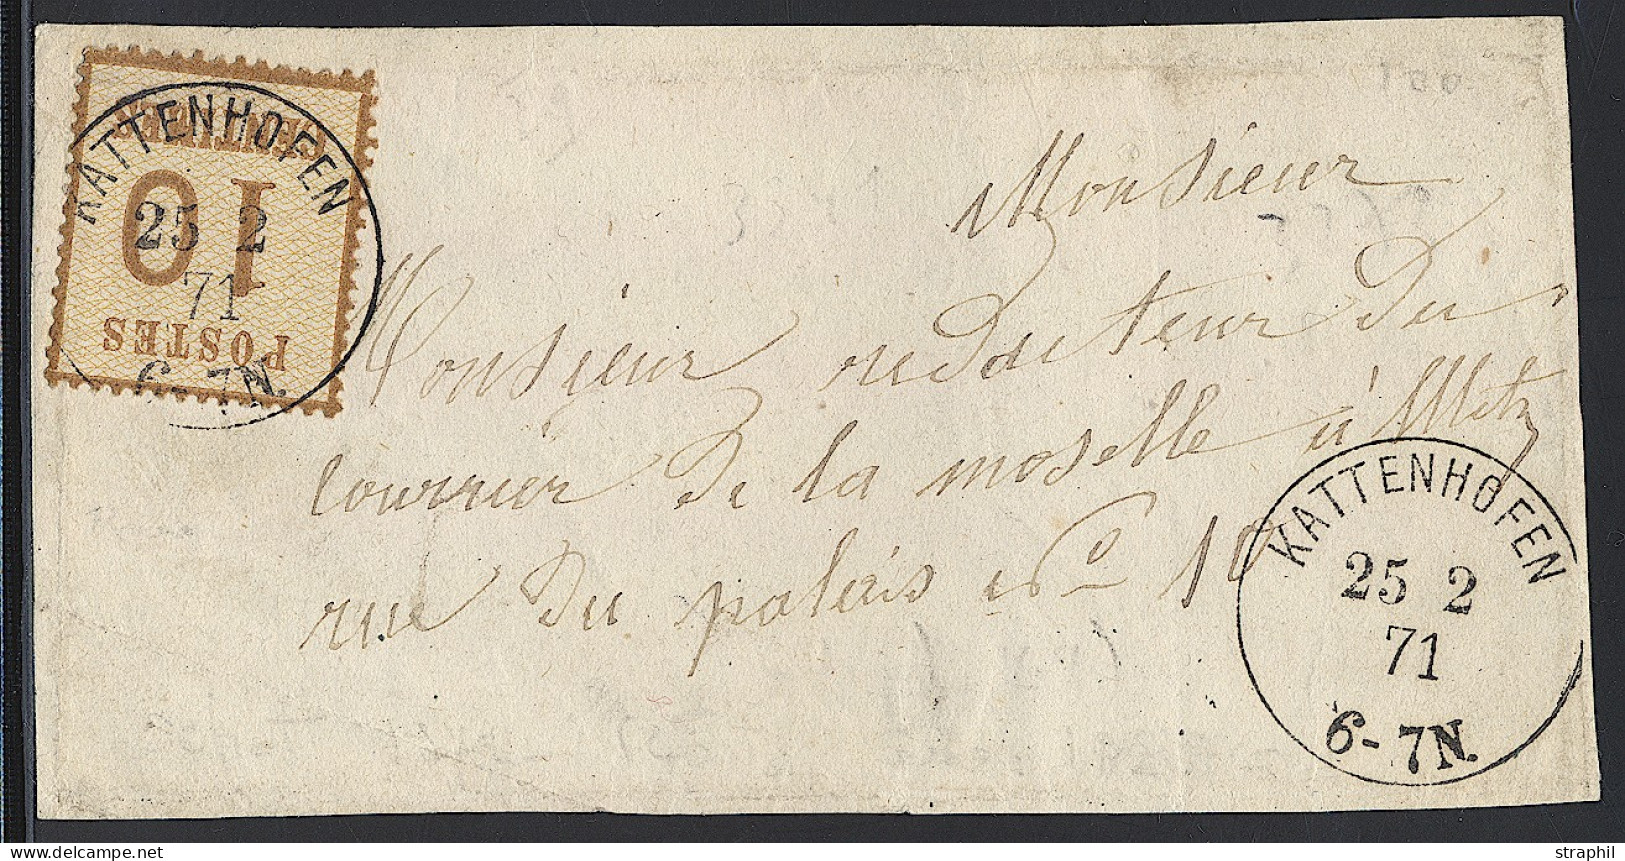 KATTENHOFEN
25 2
71
6-7N.
CENTIMES
10
POSTES
Monsieur
Monsieur redacteur du
courrier de la moselle à Metz
rue du palais No 10
KATTENHOFEN
25 2
71
6-7N.
straphil